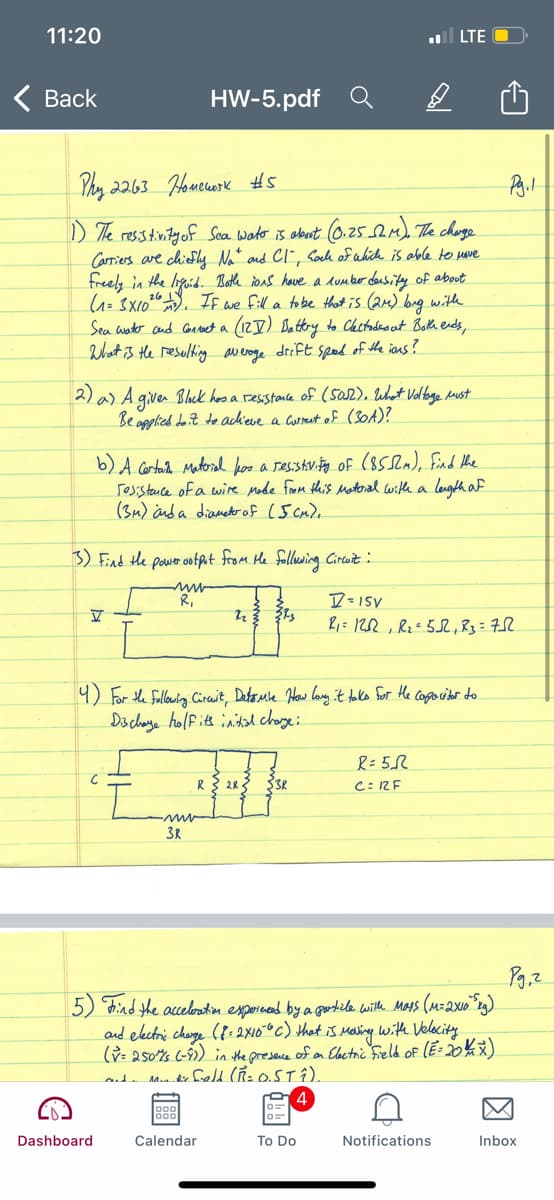 11:20
LTE
Back
HW-5.pdf
Phy 2263 Homework #5
Pg.1
1) The resistivity of Sea water is about (0.25 ΩM). The charge
Carriers are chiefly Na⁺ and Cl⁻, each of which is able to move
freely in the liquid. Both ions have a number density of about
(n= 3X10²⁶ 1/m³). If we fill a tube that is (2m) long with
Sea water and connect a (12V) Battery to electrodes at Both ends,
What is the resulting average drift speed of the ions?
2) a) A given Block has a resistance of (50Ω). What Voltage must
Be applied to it to achieve a current of (30A)?
b) A Certain Material has a resistivity of (85Ωm), find the
resistance of a wire made from this material with a length of
(3m) and a diameter of (5cm).
3) Find the power output from the following Circuit:
R₁
V
R₂
R₃
V=15V
R₁= 12Ω , R₂= 5Ω, R₃= 7Ω
4) For the following Circuit, Determine How long it takes for the Capacitor to
Discharge half its initial charge:
C
R
2R
3R
3R
R= 5Ω
C= 12F
Pg,2
5) Find the acceleration experienced by a particle with mass (M=2x10⁻⁵kg)
and electric charge (q=2X10⁻⁶C) that is moving with Velocity
(v⃗= 250m/s (-ŷ)) in the presence of an Electric Field of (E⃗=20 N/C x̂)
4
Dashboard
Calendar
To Do
Notifications
Inbox